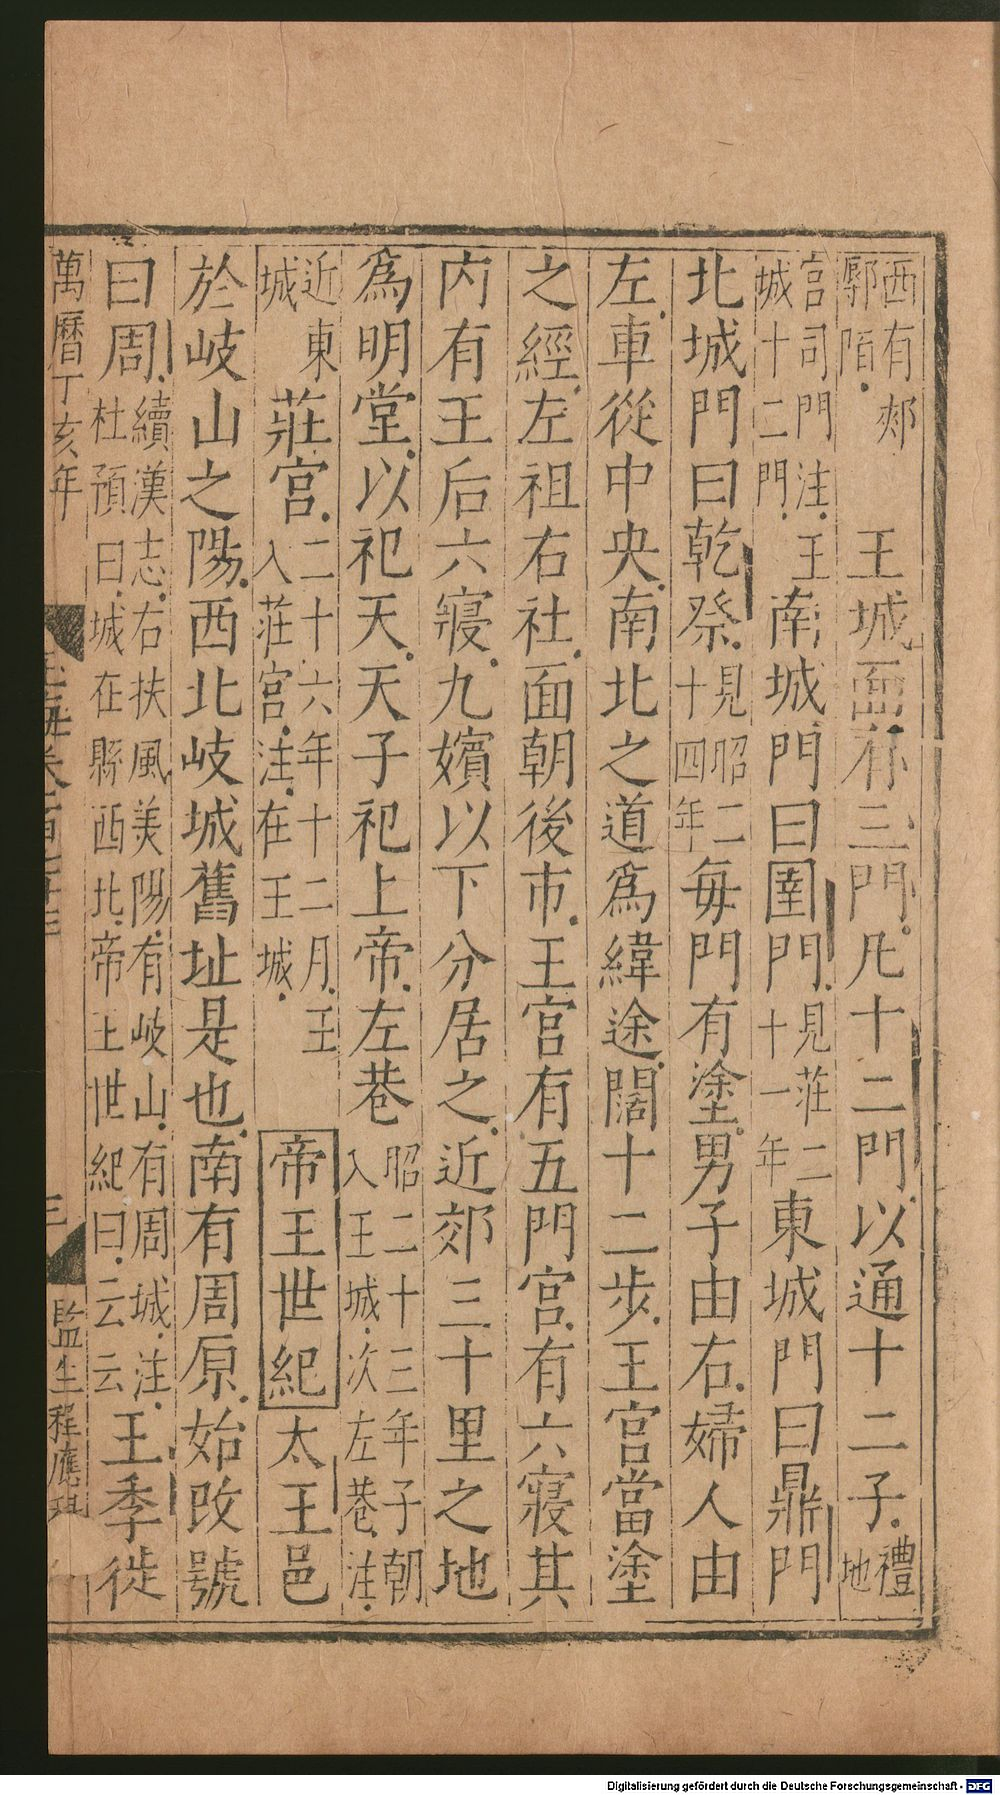 西有郟郭陌王城面有三門凡十二門以通十二子禮地
官司門注王城十二門南城門曰圉門見莊二十一年東城門曰鼎門
北城門曰乾祭見昭二十四年每門有塗男子由右婦人由
左車從中央南北之道為緯途闊十二步王宮當塗
之經左祖右社面朝後市王宮有五門宮有六寢其
內有王后六寢九嬪以下分居之近郊三十里之地
為明堂以祀天天子祀上帝左巷昭二十三年子朝入王城次左巷注
近東城莊宮二十六年十二月王入莊宮注在王城帝王世紀太王邑
於岐山之陽西北岐城舊址是也南有周原始改號
曰周續漢志右扶風美陽有岐山有周城注杜預曰城在縣西北帝王世紀曰云云王季徙
萬曆丁亥年
玉海卷
三
監生程應琪
Digitalisierung gefördert durch die Deutsche Forschungsgemeinschaft - DFG